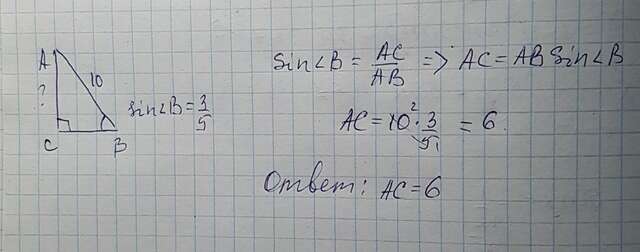 A
10
?
sin∠B = 3/5
C
B
Sin∠B = AC/AB => AC = AB Sin∠B
AC = 10² · 3/5₁ = 6.
Ответ: AC = 6